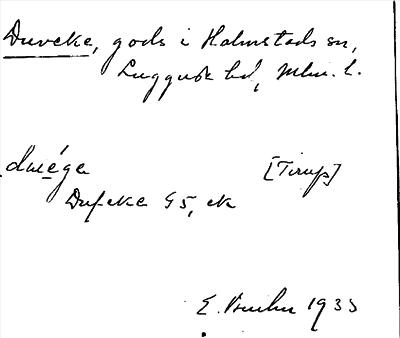 Duveke, gods i Halmstads sn,
Luggude hd, Mlm. l.
duvéga [Tirup]
Dufeke G5, ek
E. 1933